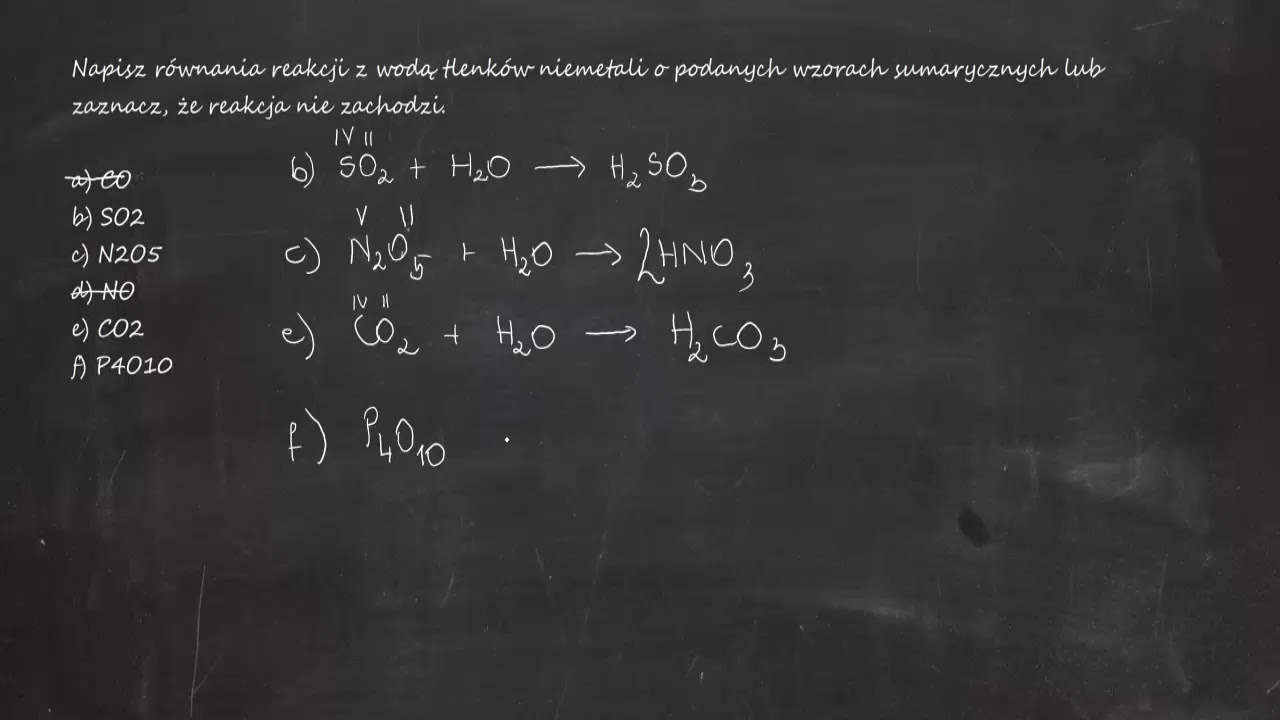 Napisz równania reakcji z wodą tlenków niemetali o podanych wzorach sumarycznych lub
zaznacz, że reakcja nie zachodzi.
a) CO
b) SO2
c) N2O5
d) NO
e) CO2
f) P4O10
IV II
b) SO₂ + H₂O → H₂SO₃
V II
c) N₂O₅ + H₂O → 2HNO₃
IV II
e) CO₂ + H₂O → H₂CO₃
f) P₄O₁₀